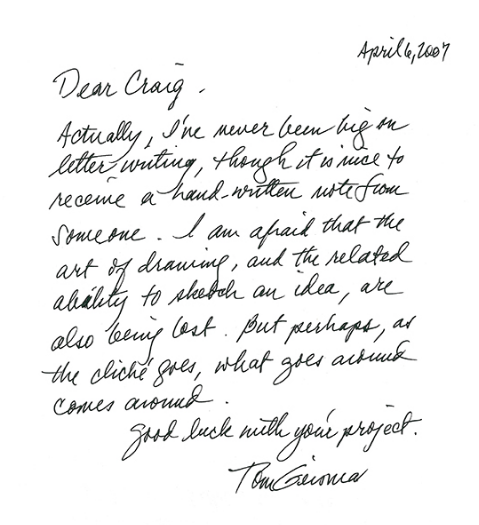 April 6, 2007
Dear Craig.
Actually, I've never been big on
letter writing, though it is nice to
receive a hand-written note from
someone. I am afraid that the
art of drawing, and the related
ability to sketch an idea, are
also being lost. But perhaps, as
the cliché goes, what goes around
comes around.
Good luck with your project.
Tom